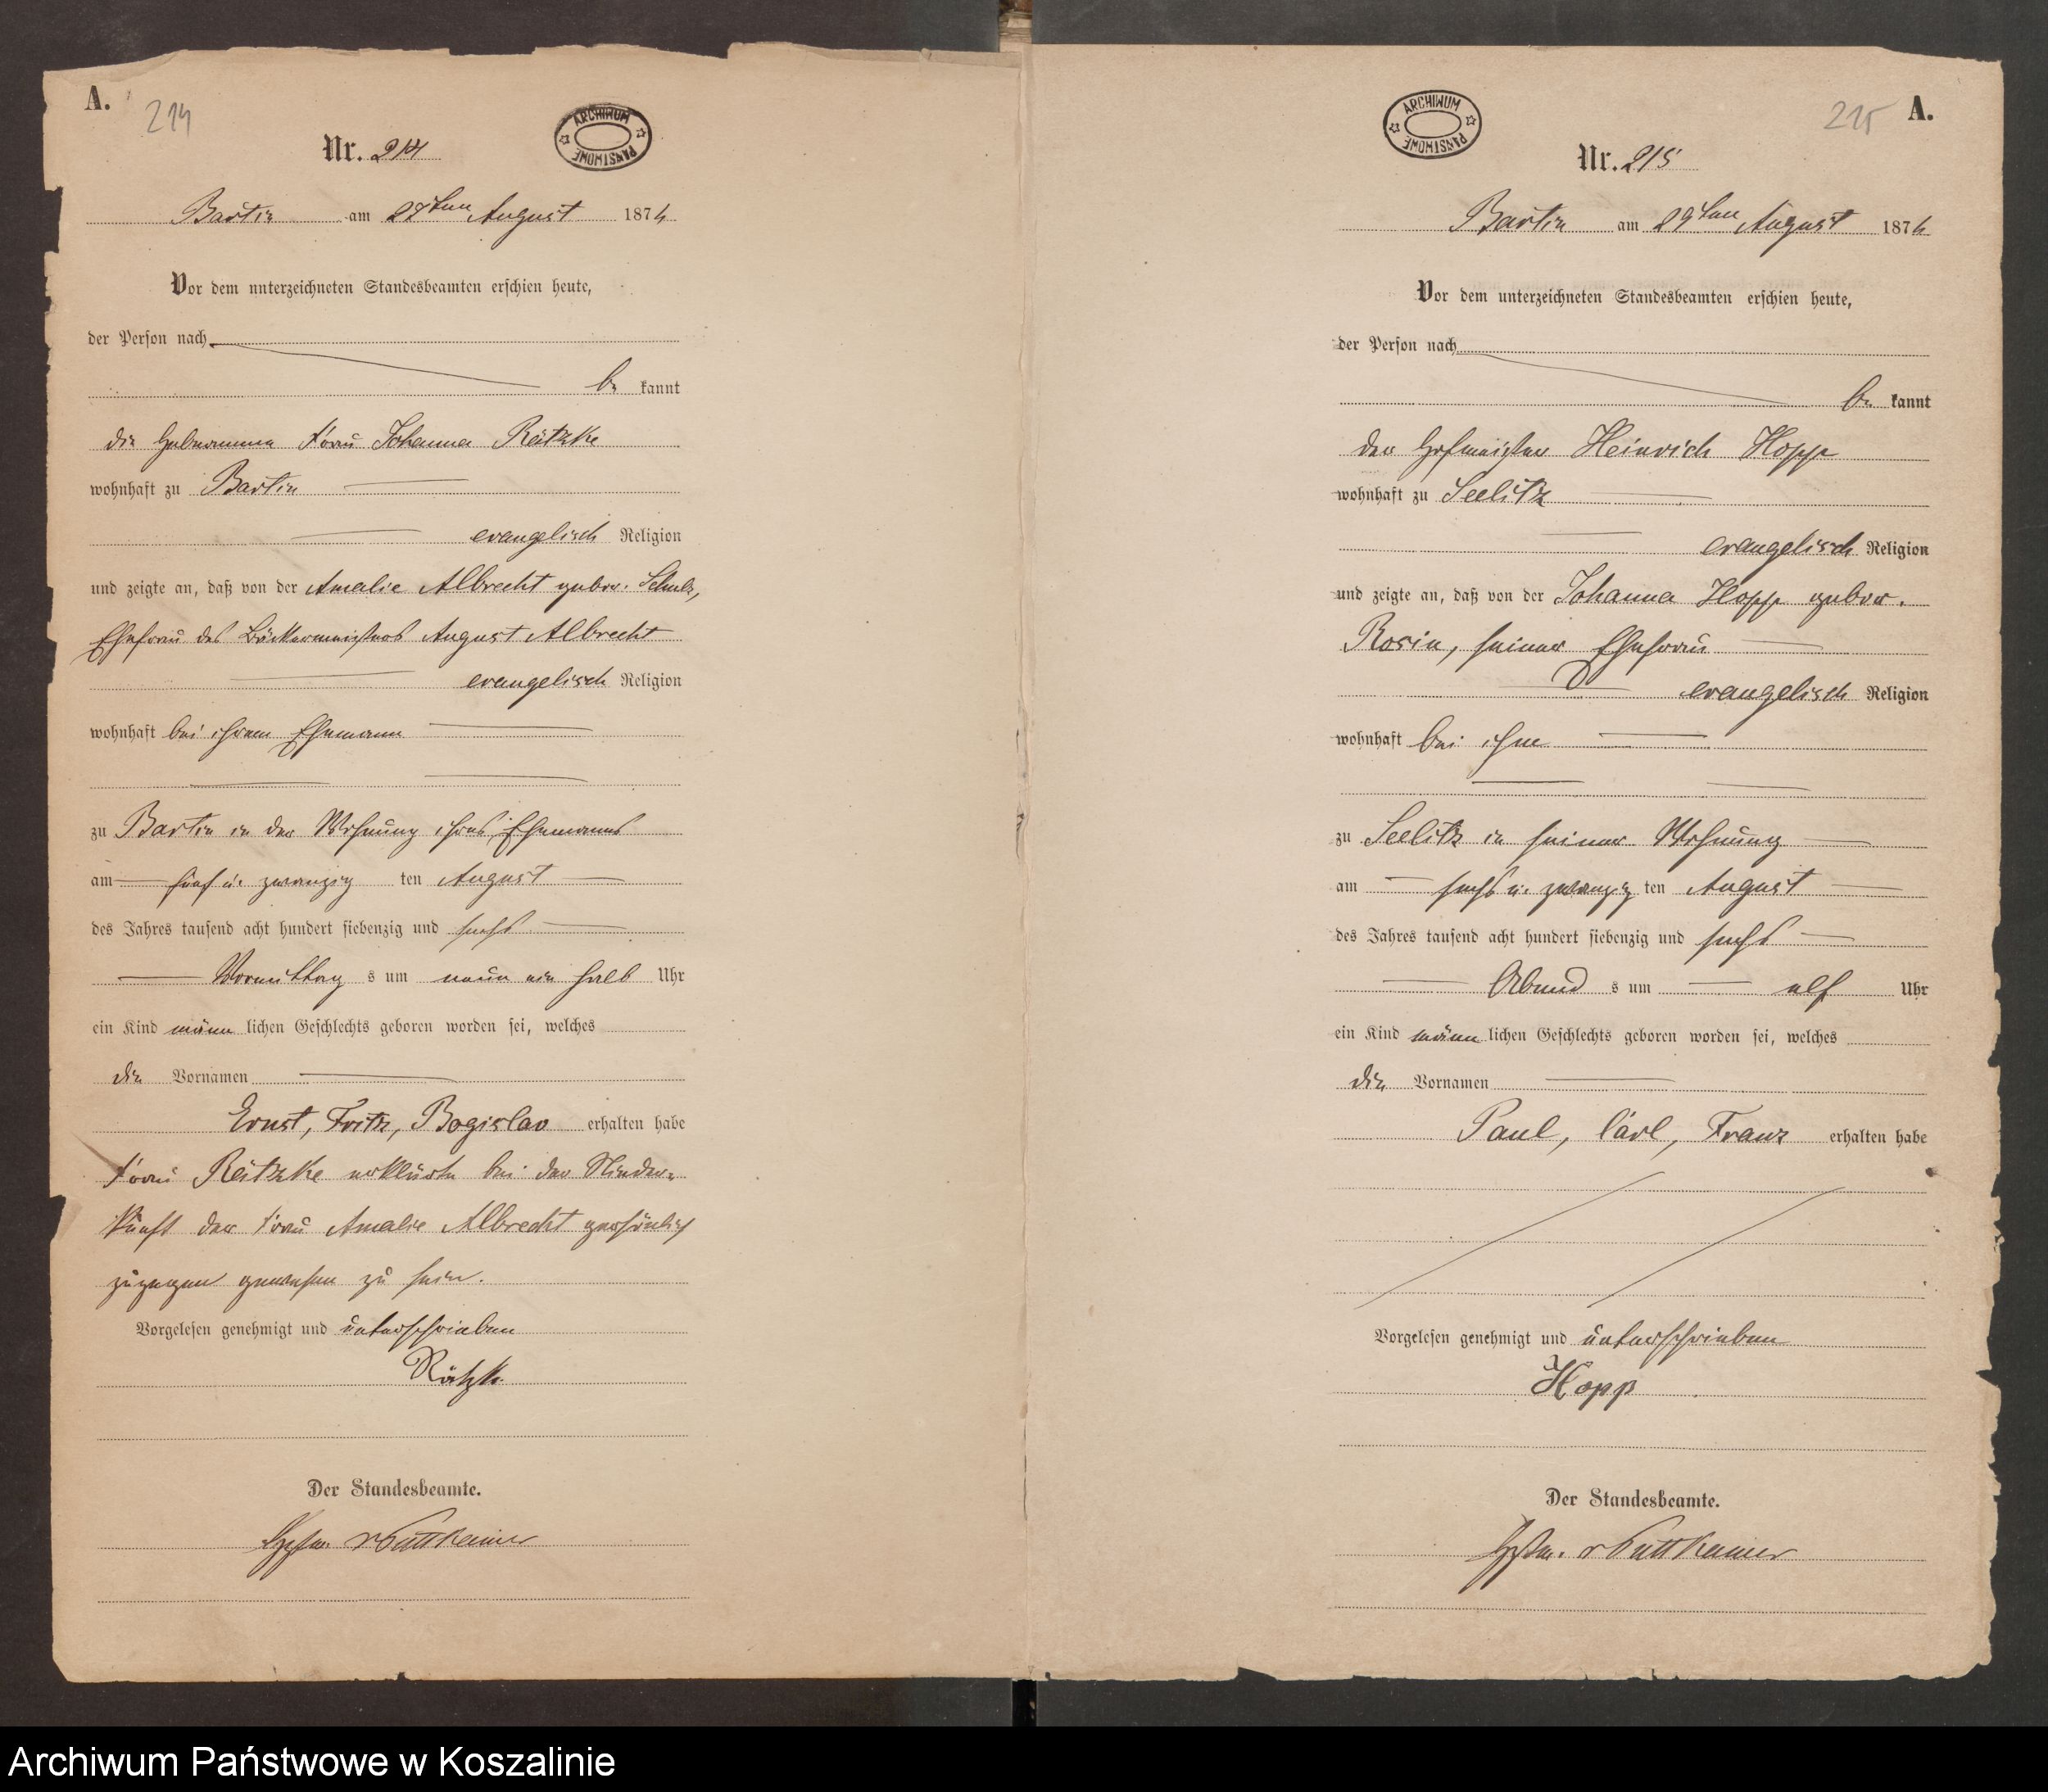 A.
214
ARCHIWUM PAŃSTWOWE
Nr. 214
Bartin am 27ten August 1876
Vor dem unterzeichneten Standesbeamten erschien heute,
der Person nach
be kannt
die Hebeamme Frau Johanna Rätzke
wohnhaft zu Bartin
evangelisch Religion
und zeigte an, daß von der Amalie Albrecht gebor. Schulz,
Ehefrau des Bäckermeisters August Albrecht
evangelisch Religion
wohnhaft bei ihrem Ehemann
zu Bartin in der Wohnung ihres Ehemanns
am fünf u. zwanzig ten August
des Jahres tausend acht hundert siebenzig und sechs
Vormittag s um neun ein halb Uhr
ein Kind männ lichen Geschlechts geboren worden sei, welches
die Vornamen
Ernst, Fritz, Bogislav erhalten habe
Frau Rätzke erklärte bei der Nieder-
kunft der Frau Amalie Albrecht persönlich
zugegen gewesen zu sein.
Vorgelesen genehmigt und unterschrieben
Rätzke
Der Standesbeamte.
v Puttkamer
215
A.
ARCHIWUM PAŃSTWOWE
Nr. 215
Bartin am 29ten August 1876
Vor dem unterzeichneten Standesbeamten erschien heute,
der Person nach
be kannt
der Hofmeister Heinrich Hopp
wohnhaft zu Seelitz
evangelisch Religion
und zeigte an, daß von der Johanna Hopp gebor.
Rosin, seiner Ehefrau
evangelisch Religion
wohnhaft bei ihm
zu Seelitz in seiner Wohnung
am sechs u. zwanzig ten August
des Jahres tausend acht hundert siebenzig und sechs
Abend s um elf Uhr
ein Kind männ lichen Geschlechts geboren worden sei, welches
die Vornamen
Paul, Carl, Franz erhalten habe
Vorgelesen genehmigt und unterschrieben
Hopp
Der Standesbeamte.
v Puttkamer
Archiwum Państwowe w Koszalinie